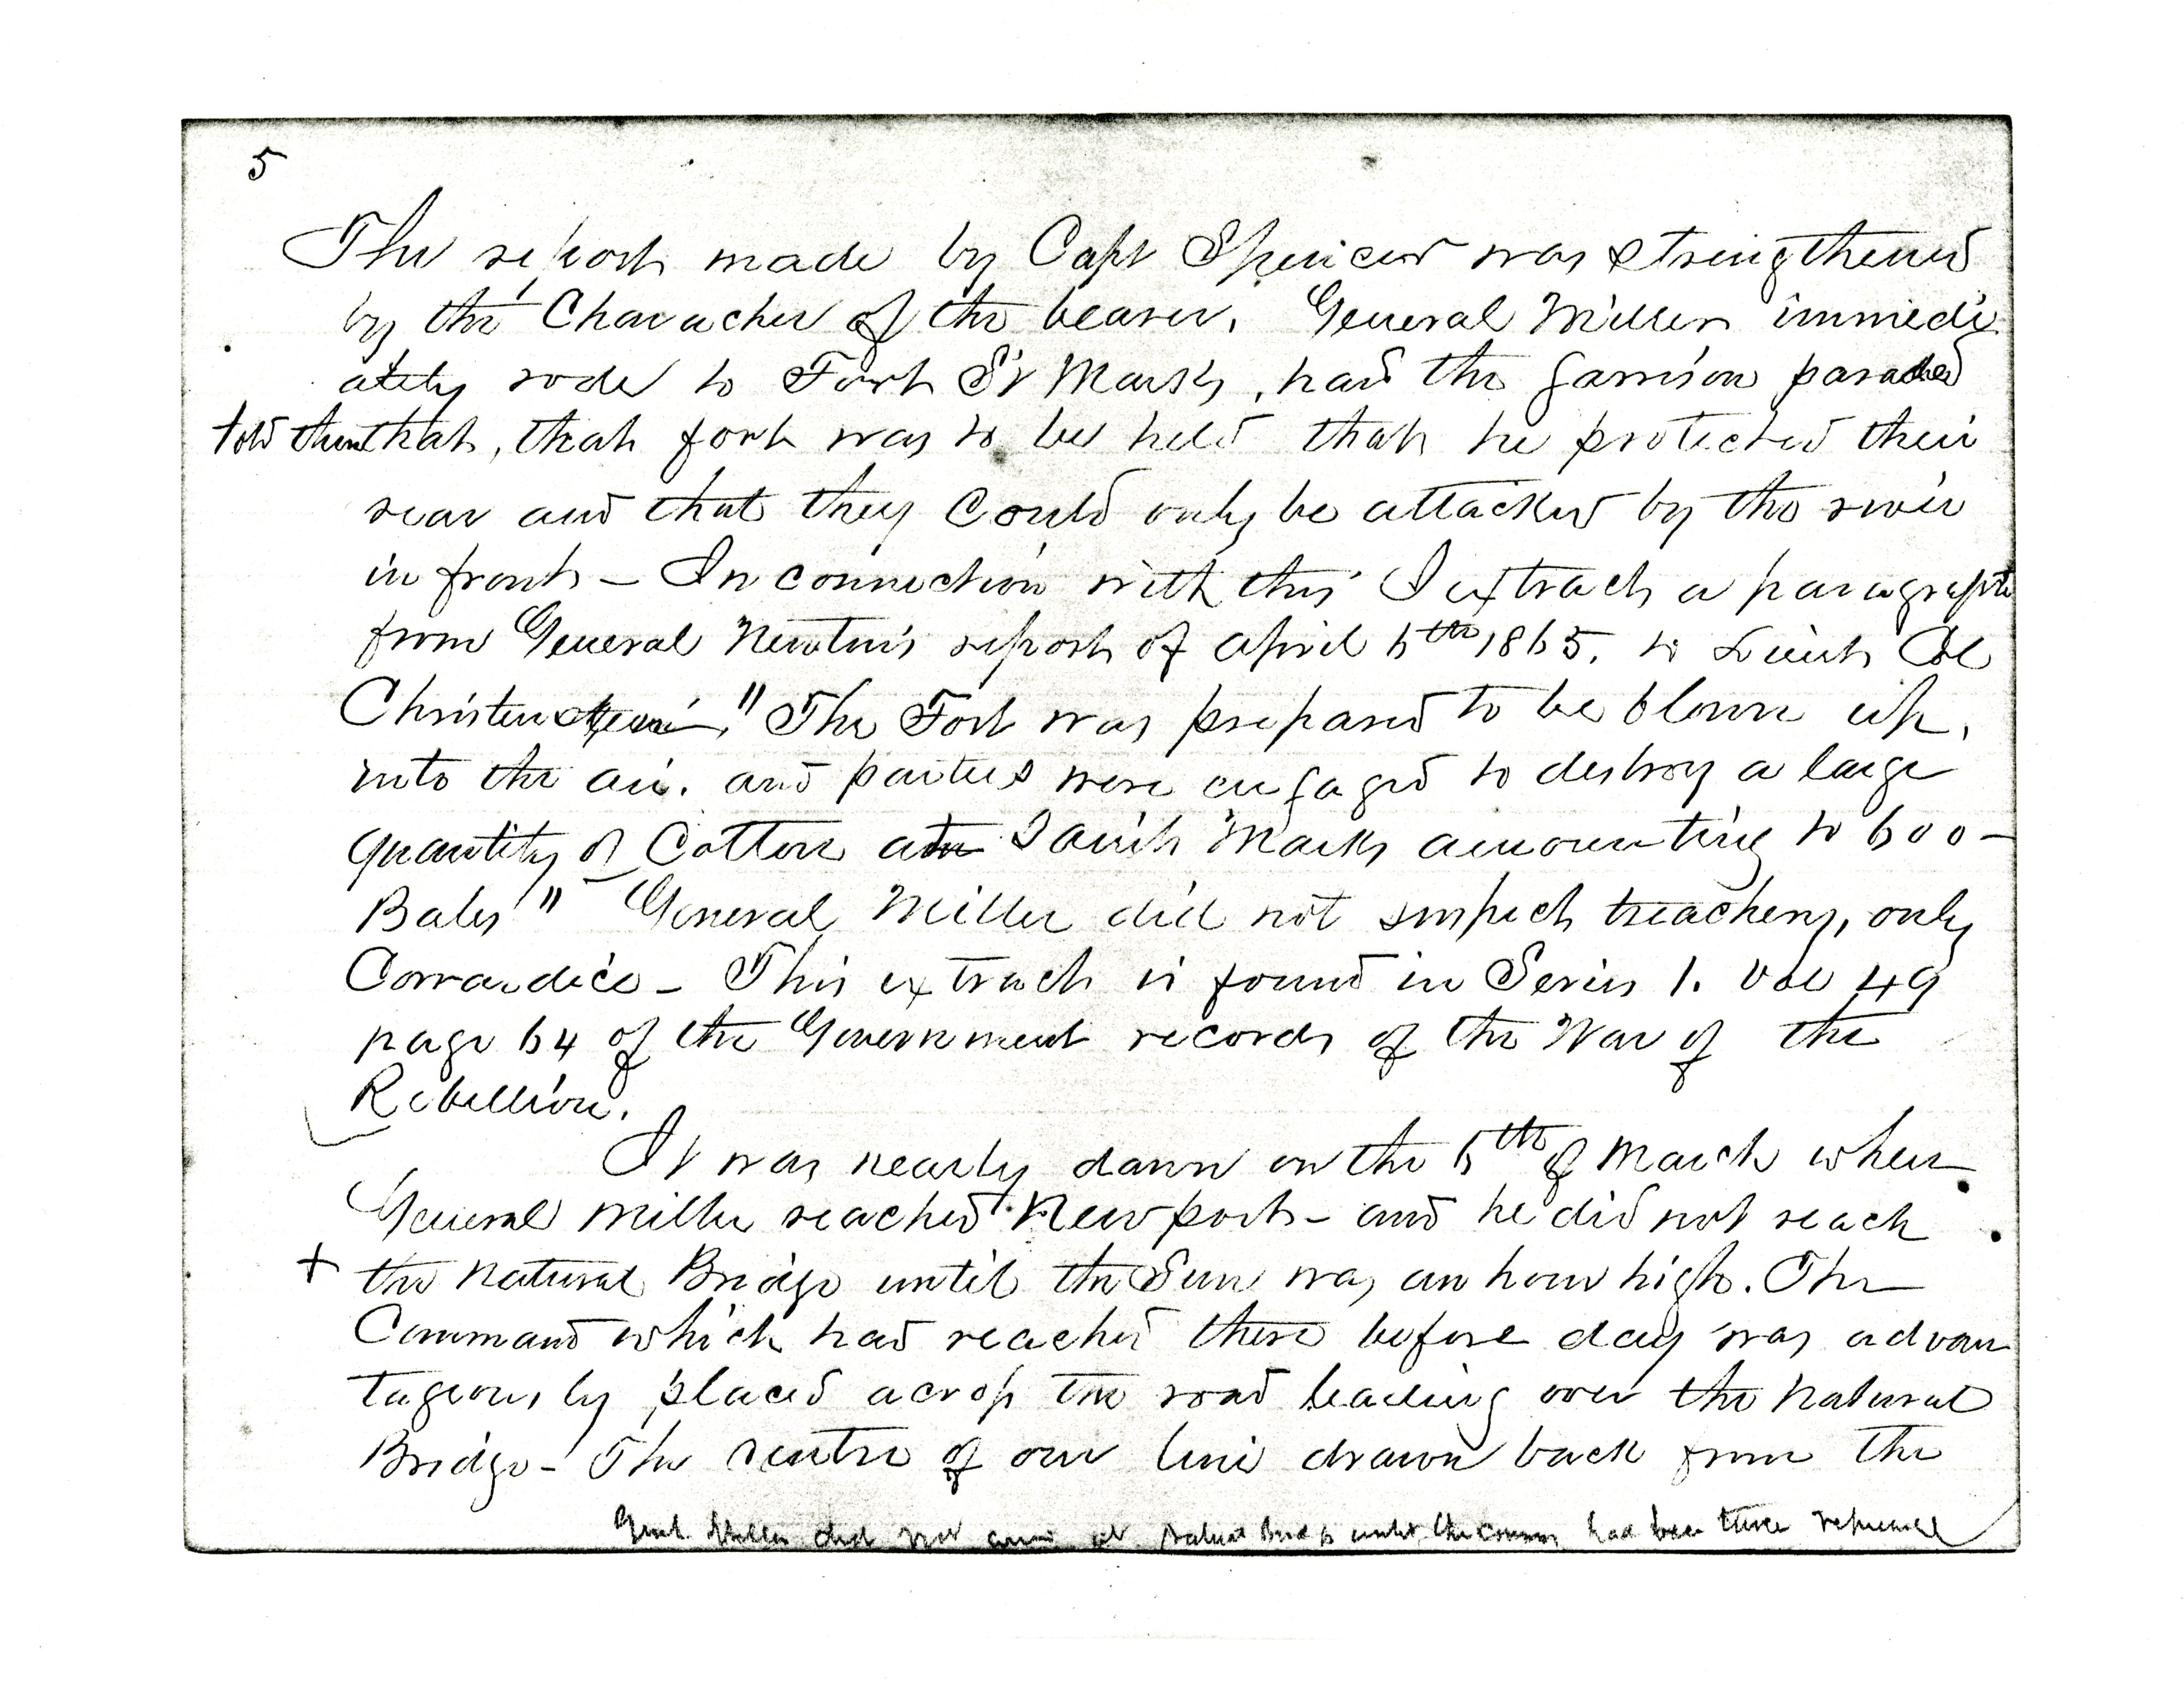 5
The report made by Capt Spencer was strengthened
by the Character of the bearer. General Miller immedi
ately rode to Fort St Marks, had the garrison paraded
told them that, that fort was to be held that he protected their
rear and that they could only be attacked by the river
in front - In connection with this I extract a paragraph
from General Newton's report of April 6th 1865. to Lieut Col
Christensen "The Fort was prepared to be blown up,
into the air. and parties were engaged to destroy a large
quantity of Cotton at Saint Marks amounting to 600 -
Bales" General Miller did not suspect treachery, only
Cowardice - This extract is found in Series 1. Vol 49
page 64 of the Government records of the War of the
Rebellion.
It was nearly dawn on the 6th of March when
General Miller reached Newport - and he did not reach
+ the Natural Bridge until the Sun was an hour high. The
Command which had reached there before day was advan
tageously placed across the road leading over the Natural
Bridge - The centre of our line drawn back from the
Genl. Miller did not arrive at Natural Bridge until the enemy had been twice repulsed